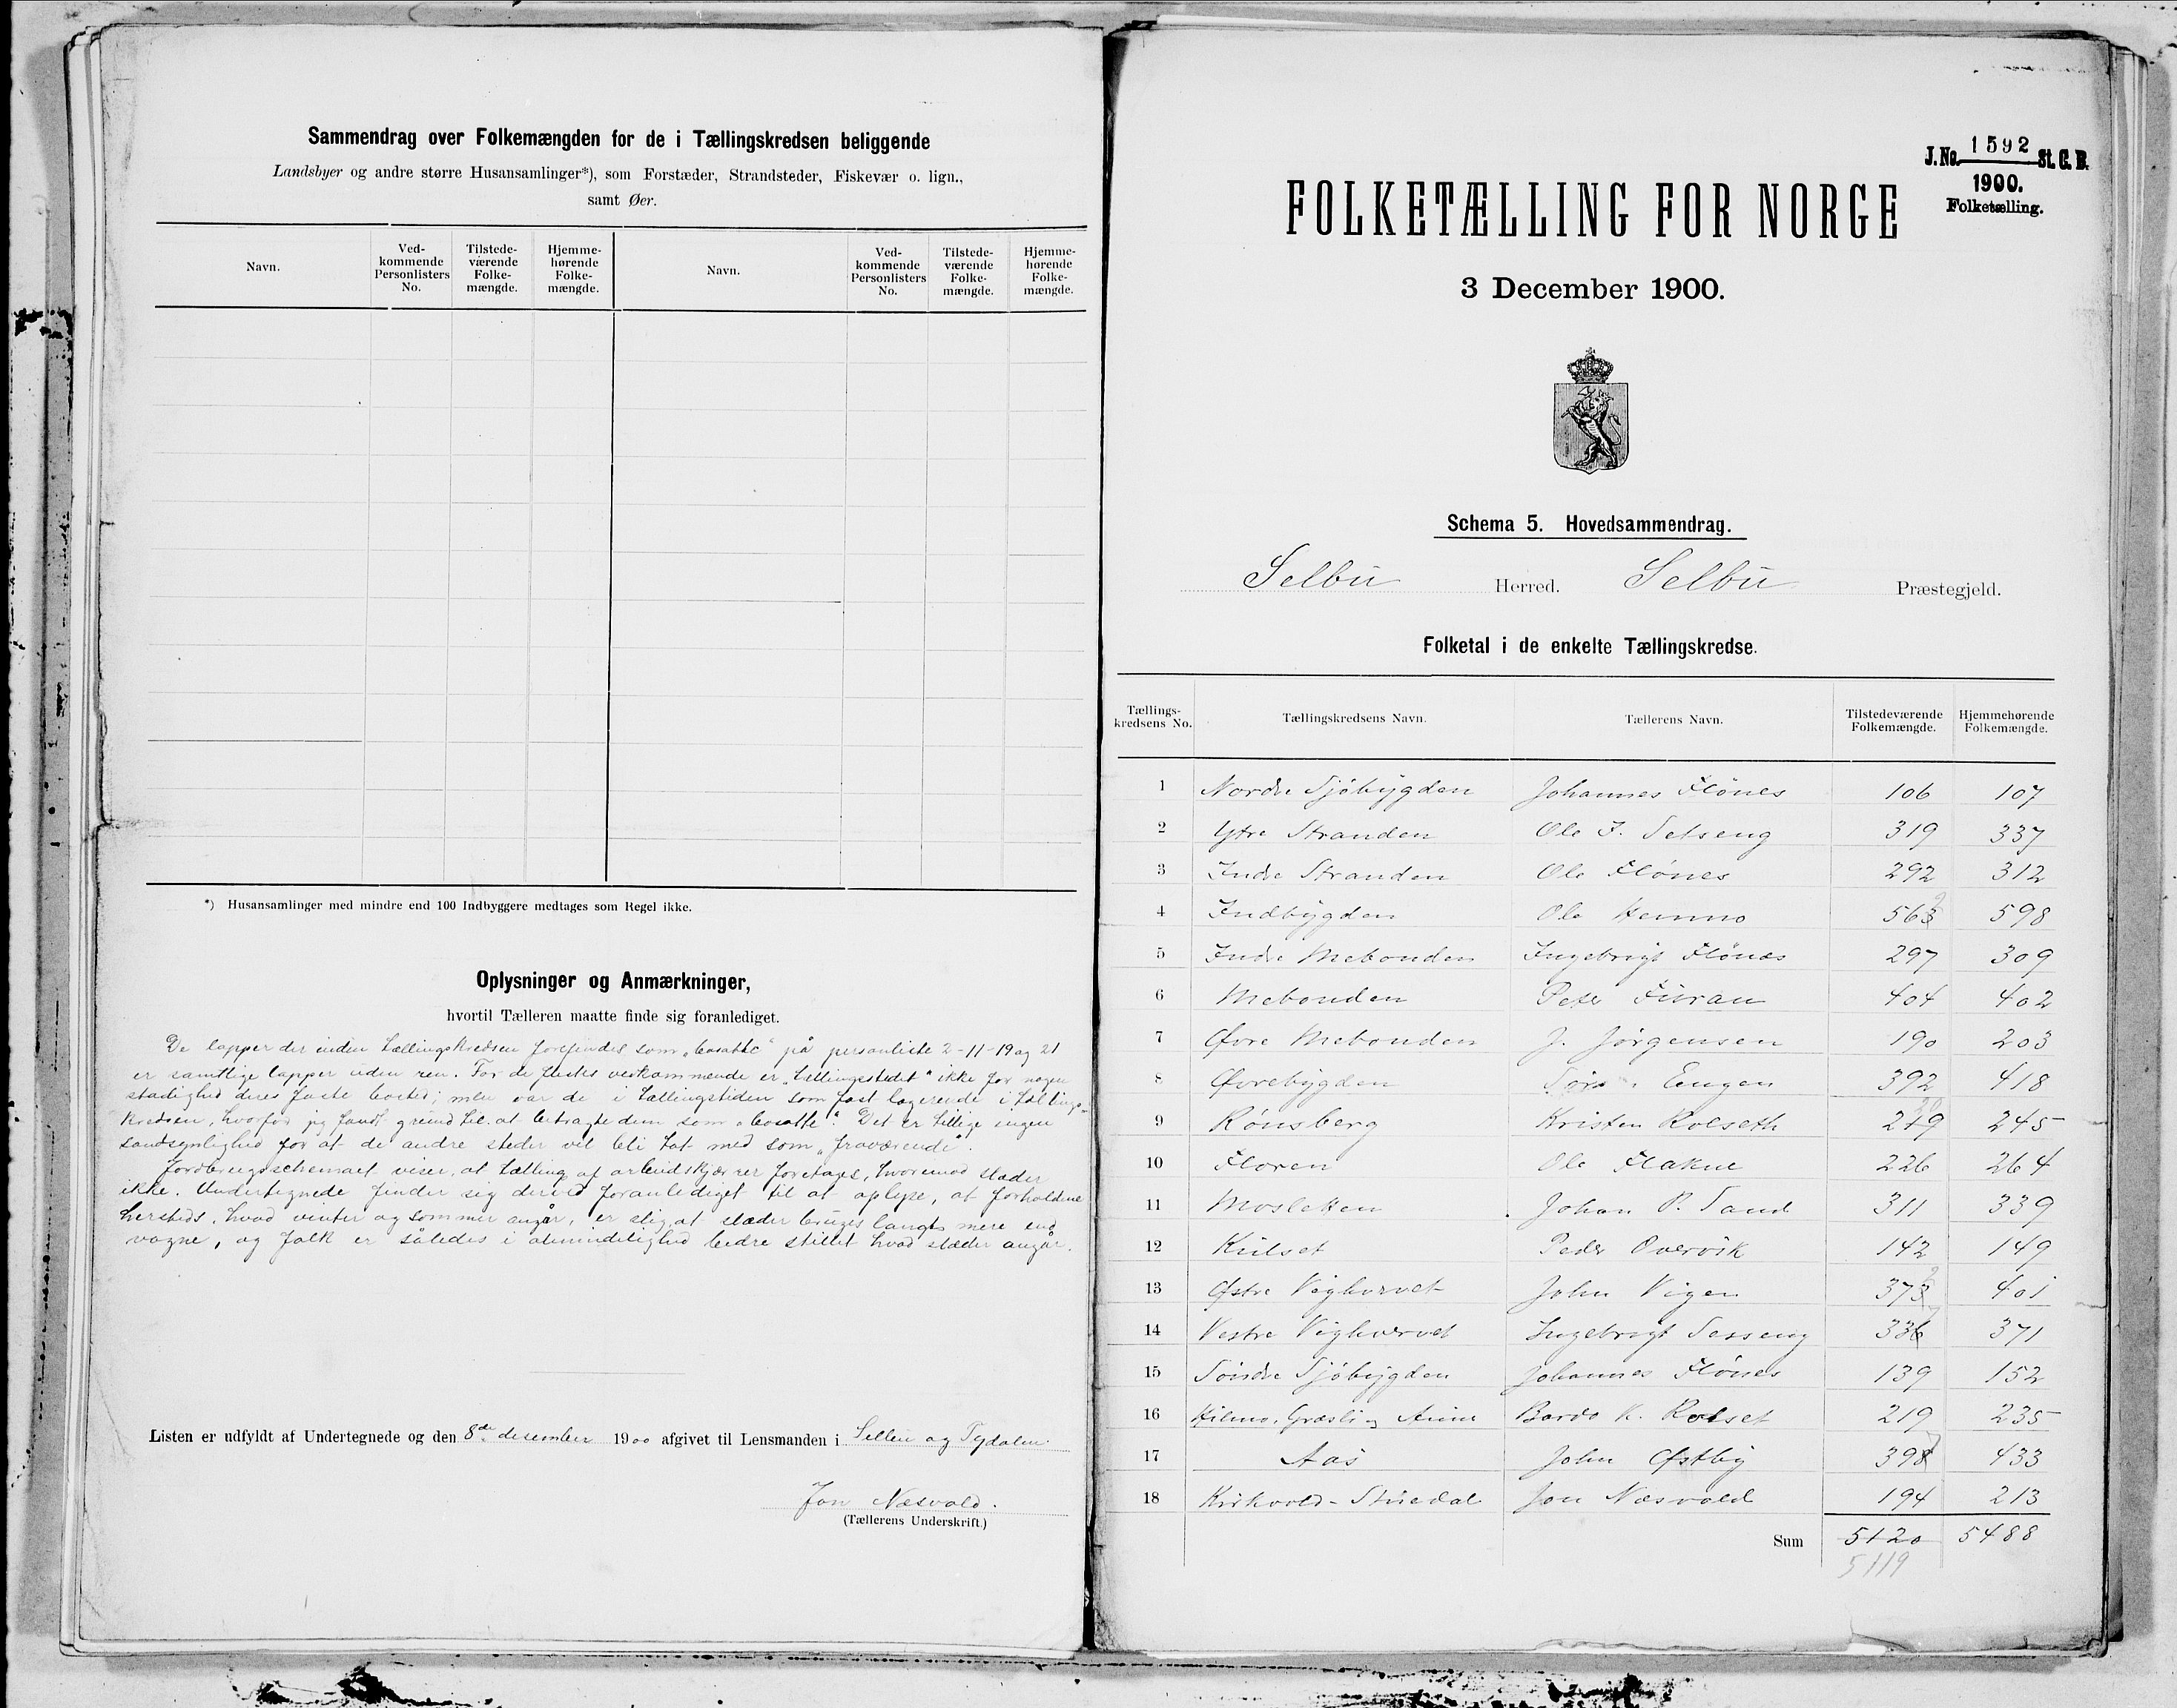 Sammendrag over Folkemængden for de i Tællingskredsen beliggende
Landsbyer og andre større Husansamlinger*), som Forstæder, Strandsteder, Fiskevær o. lign.,
samt Øer.
Navn.
Ved-
kommende
Personlisters
No.
Tilstede-
værende
Folke-
mængde.
Hjemme-
hørende
Folke-
mængde.
Navn.
Ved-
kommende
Personlisters
No.
Tilstede-
værende
Folke-
mængde.
Hjemme-
hørende
Folke-
mængde.
*) Husansamlinger med mindre end 100 Indbyggere medtages som Regel ikke.
Oplysninger og Anmærkninger,
hvortil Tælleren maatte finde sig foranlediget.
De lapper der inden tællingskredsen forefindes som „bosatte“ på personliste 2-11-19 og 21
er samtlige lapper uden ren. For de flestes vedkommende er „tællingsstedet“ ikke for nogen
stadighed deres faste bosted; men var de i tællingstiden som fast logerende i tællings-
kredsen, hvorfor jeg fandt grund til at betragte dem som „bosatte“. Det er tillige ingen
sandsynlighed for at de andre steder vil bli tat med som „fraværende“.
Jordbrugsschemaet viser, at tælling af arbeidskjærrer foretages, hvorimod slæder
ikke. Undertegnede finder sig derved foranlediget til at oplyse, at forholdene
hersteds, hvad vinter og sommer angår, er slig, at slæder bruges langt mere end
vogne, og folk er således i almindelighed bedre stillet hvad slæder angår.
Listen er udfyldt af Undertegnede og den 8de desember 1900 afgivet til Lensmanden i Selbu og Tydalen
Jon Næsvold.
(Tællerens Underskrift.)
J. No. 1592 St. C. B.
1900.
Folketælling.
FOLKETÆLLING FOR NORGE
3 December 1900.
Schema 5. Hovedsammendrag.
Selbu Herred. Selbu Præstegjeld.
Folketal i de enkelte Tællingskredse.
Tællings-
kredsens No.
Tællingskredsens Navn.
Tællerens Navn.
Tilstedeværende
Folkemængde.
Hjemmehørende
Folkemængde.
1 Nordre Sjøbygden Johannes Flønes 106 107
2 Ytre Stranden Ole J. Setseng 319 337
3 Indre Stranden Ole Flønes 292 312
4 Indbygden Ole Hemmo 563 598
5 Indre Mebonden Ingebrigt Flønæs 297 309
6 Mebonden Peter Furan 404 402
7 Øvre Mebonden J. Jørgensen 190 203
8 Øvrebygden Engen 392 418
9 Rønsberg Kristen Rolseth 219 245
10 Floren Ole Flakne 226 264
11 Mosletten Johan P. Sand 311 339
12 Kulset Peder Overvik 142 149
13 Østre Vighvervet John Vigen 373 401
14 Vestre Vighvervet Ingebrigt Sesseng 336 371
15 Søndre Sjøbygden Johannes Flønes 139 152
16 Hilmo, Græsli og Aune Bardo K. Rolset 219 235
17 Aas John Østby 398 433
18 Kirkvold-Stuedal Jon Næsvold 194 213
Sum 5120 5488
5119